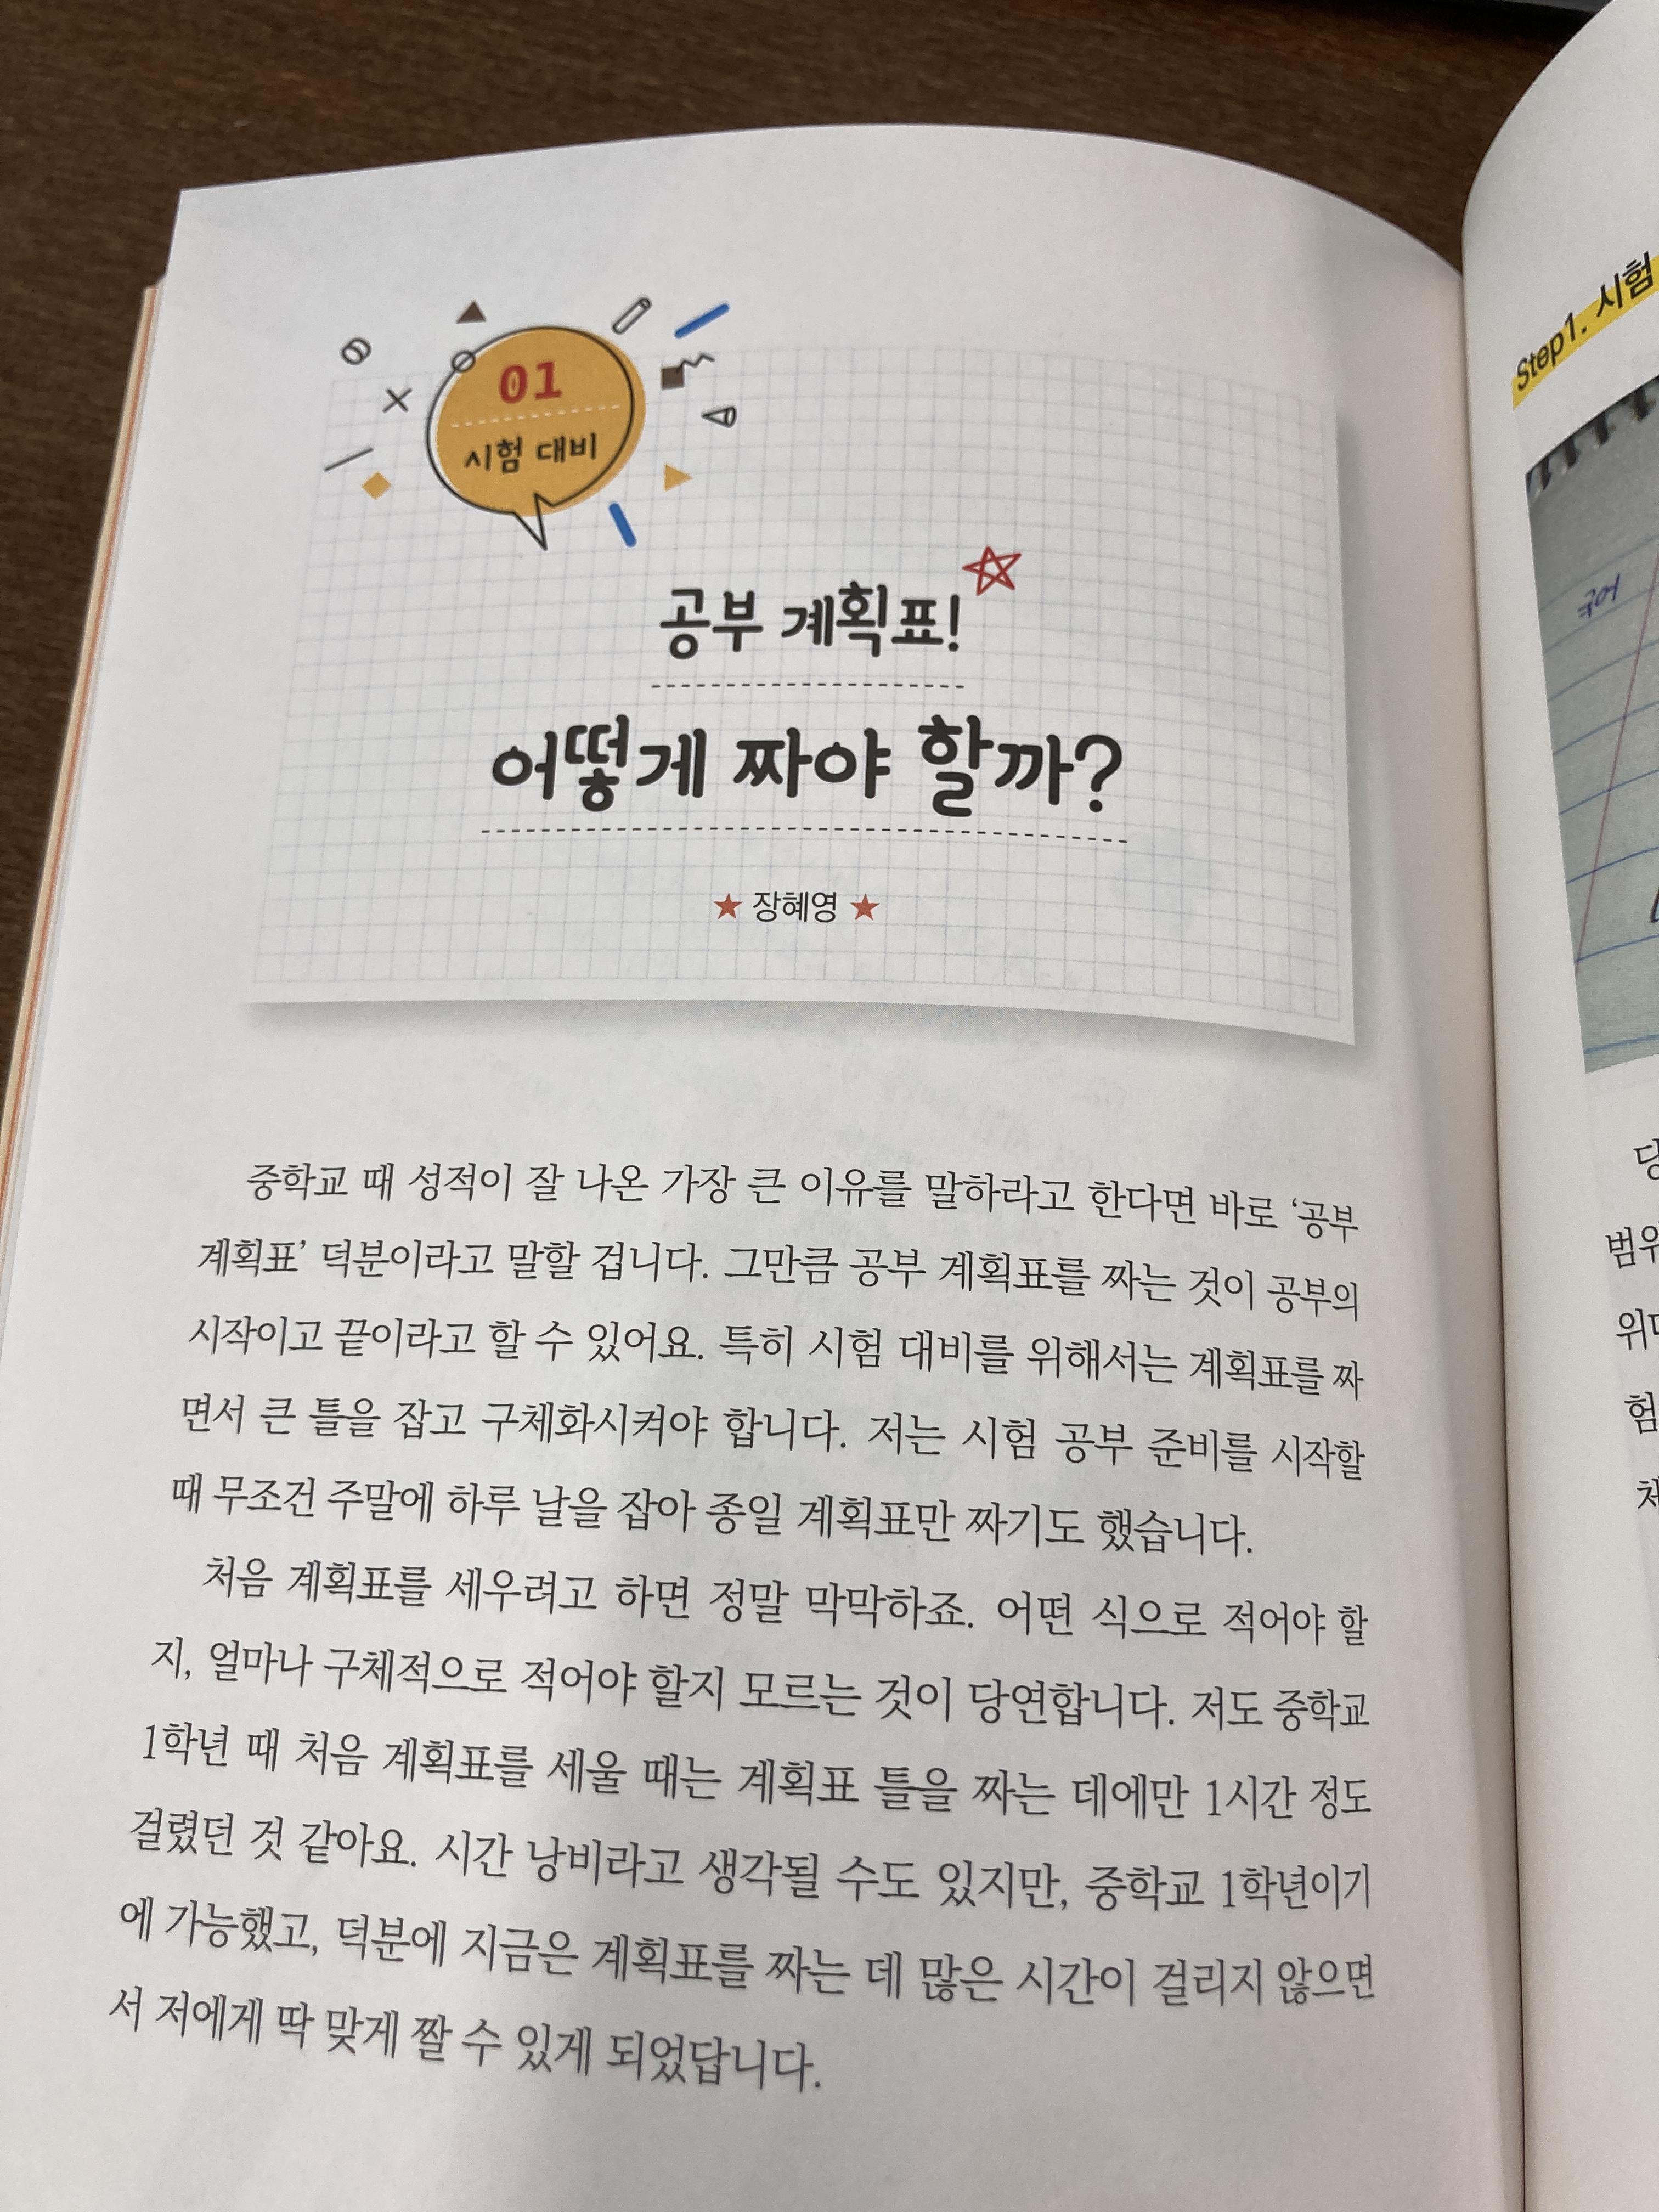 01
시험 대비
공부 계획표!
어떻게 짜야 할까?
★ 장혜영 ★
중학교 때 성적이 잘 나온 가장 큰 이유를 말하라고 한다면 바로 ‘공부
계획표’ 덕분이라고 말할 겁니다. 그만큼 공부 계획표를 짜는 것이 공부의
시작이고 끝이라고 할 수 있어요. 특히 시험 대비를 위해서는 계획표를 짜
면서 큰 틀을 잡고 구체화시켜야 합니다. 저는 시험 공부 준비를 시작할
때 무조건 주말에 하루 날을 잡아 종일 계획표만 짜기도 했습니다.
처음 계획표를 세우려고 하면 정말 막막하죠. 어떤 식으로 적어야 할
지, 얼마나 구체적으로 적어야 할지 모르는 것이 당연합니다. 저도 중학교
1학년 때 처음 계획표를 세울 때는 계획표 틀을 짜는 데에만 1시간 정도
걸렸던 것 같아요. 시간 낭비라고 생각될 수도 있지만, 중학교 1학년이기
에 가능했고, 덕분에 지금은 계획표를 짜는 데 많은 시간이 걸리지 않으면
서 저에게 딱 맞게 짤 수 있게 되었답니다.
Step1. 시험
국어
범위
험